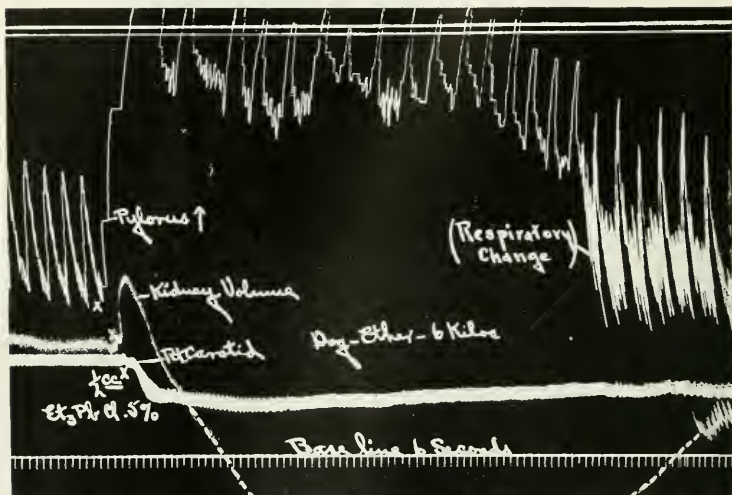 Pylorus ↑
(Respiratory
Change)
Kidney Volume
Rt Carotid
Dog-Ether-6 Kilos
½ cc
Et₃Pb Cl .5%
Base line 6 Seconds